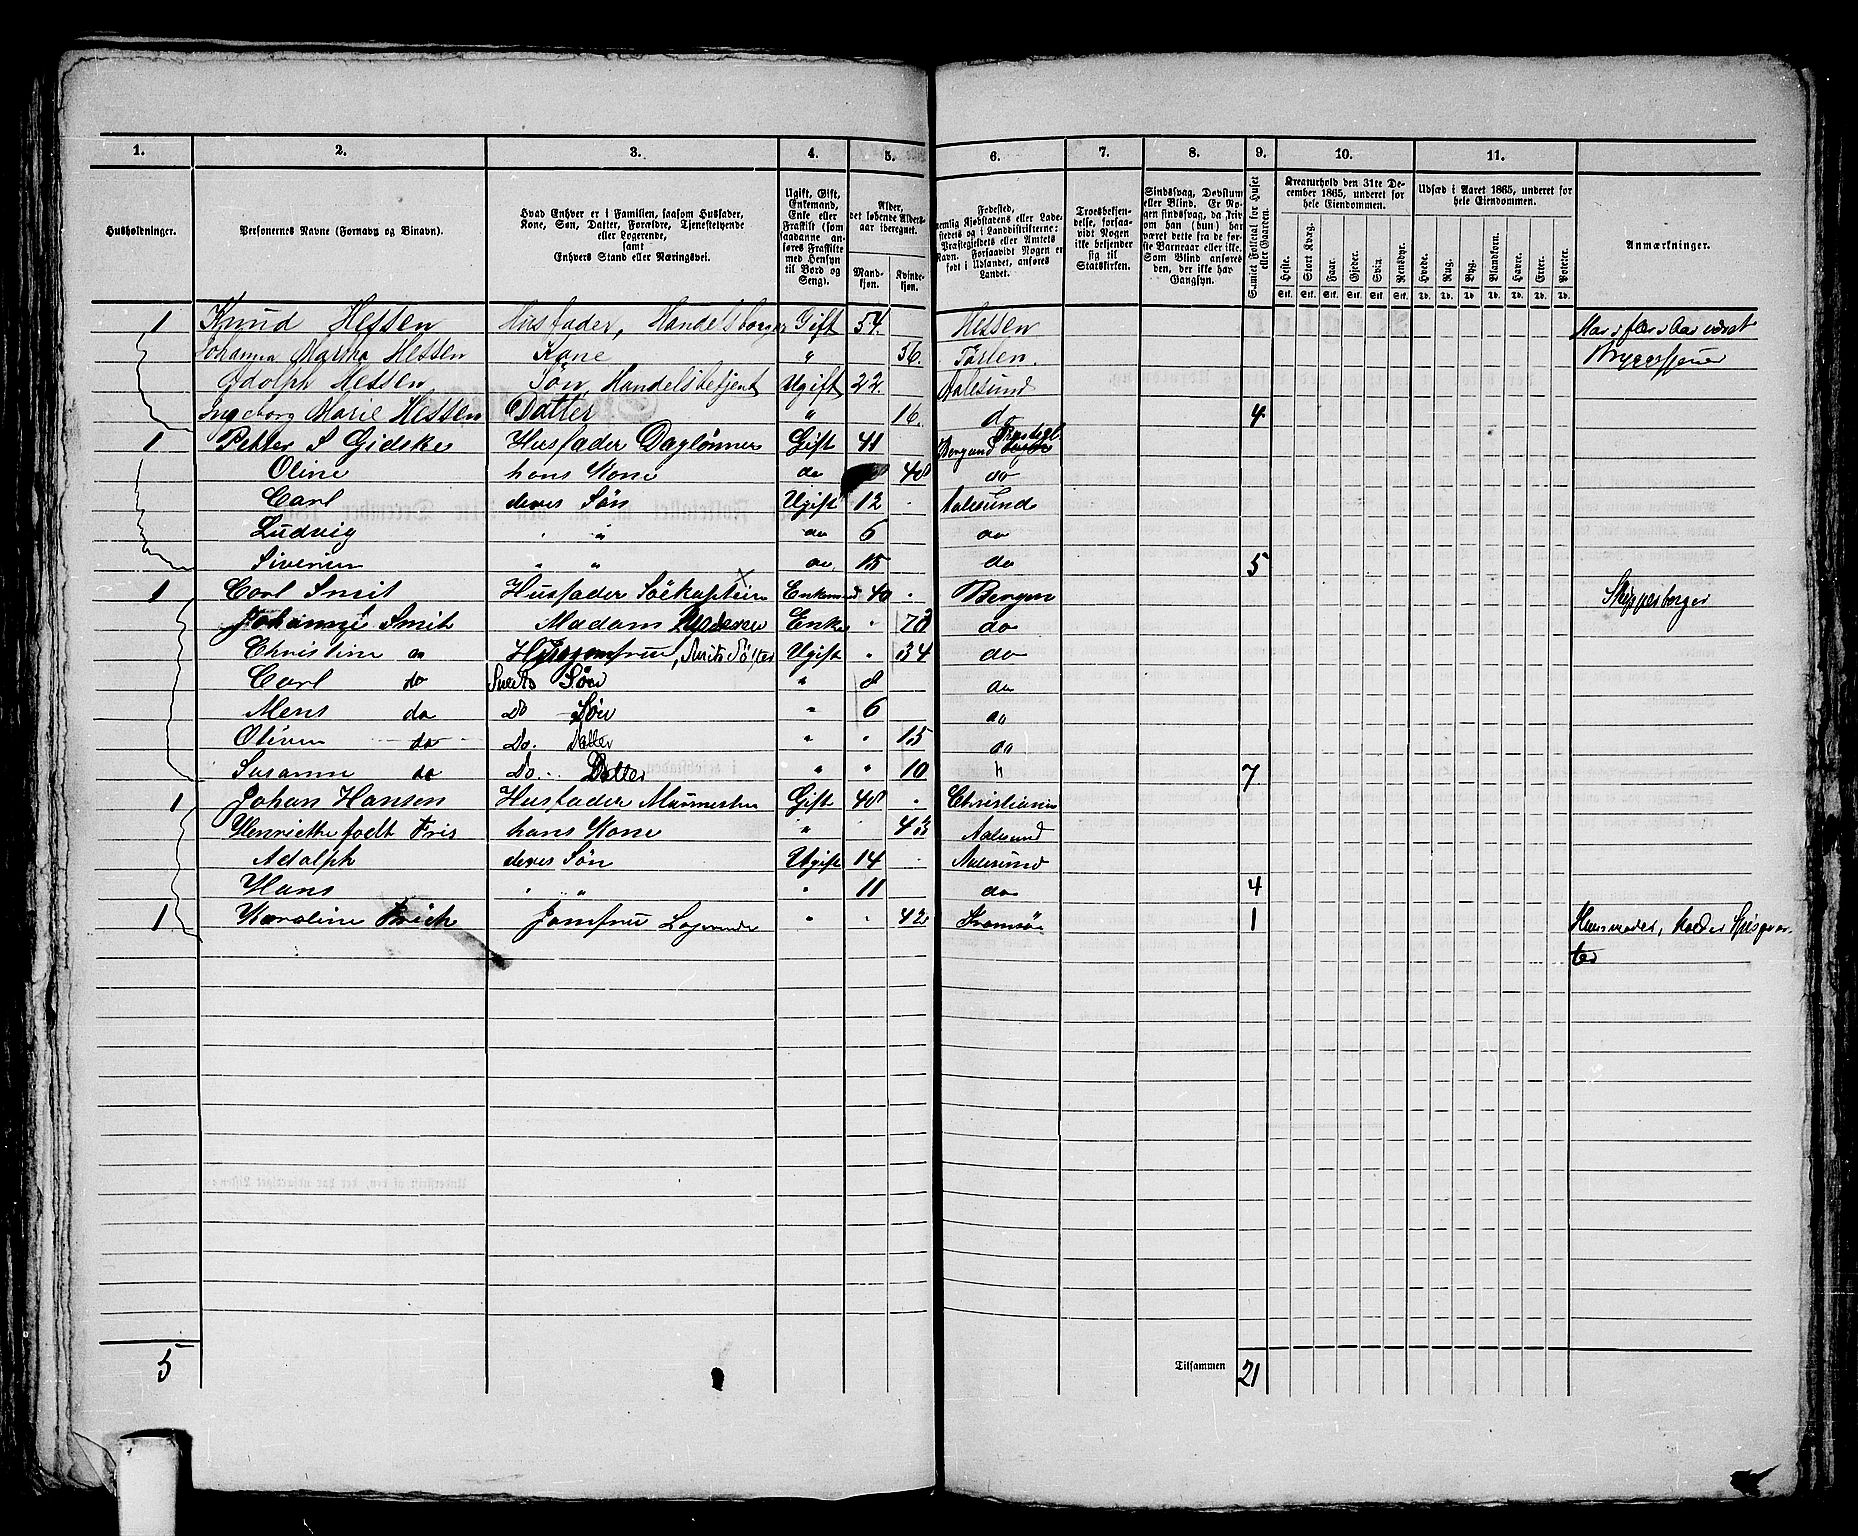 1. 2. 3. 4. 5. 6. 7. 8. 9. 10. 11.
Husholdninger.
Personernes Navne (Fornavn og Binavn).
Hvad Enhver er i Familien, saasom Husfader, Kone, Søn, Datter, Forældre, Tjenestetyende eller Logerende, samt Enhvers Stand eller Næringsvei.
Ugift, Gift, Enkemand, Enke eller Fraskilt (som saadanne anføres Fraskilte med Hensyn til Bord og Seng).
Alder, det løbende Alders-aar iberegnet.
Mand-kjøn. Kvinde-kjøn.
Fødested, nemlig Kjøbstadens eller Ladestedets og i Landdistrikterne: Præstegjeldets eller Amtets Navn. Forsaavidt Nogen er født i Udlandet, anføres Landet.
Troesbekjendelse, forsaavidt Nogen ikke bekjender sig til Statskirken.
Sindssvag, Døvstum eller Blind. Er Nogen sindssvag, da hvorvidt han (hun) har været dette fra de første Barneaar eller ikke. Som Blind anføres den, der ikke har Gangsyn.
Samlet Folketal for Huset eller Gaarden.
Kreaturhold den 31te December 1865, underet for hele Eiendommen.
Heste. Stort Kvæg. Faar. Gjeder. Svin. Rensdyr.
Stk. Stk. Stk. Stk. Stk. Stk.
Udsæd i Aaret 1865, underet for hele Eiendommen.
Hvede. Rug. Byg. Blandkorn. Havre. Erter. Poteter.
Td. Td. Td. Td. Td. Td. Td.
Anmærkninger.
1 Knud Hessen Husfader, Handelsborger Gift 54. Hessen
Johanna Martha Hessen Kone " 56.
Adolph Hessen Søn Handelsbetjent Ugift 22. Aalesund
Ingeborg Marie Hessen Datter " 16. do 4
1 Petter S Gidske Husfader Daglønner Gift 41 Borgund
Oline hans Kone do 48 do
Carl deres Søn Ugift 12 Aalesund
Ludvig " " do 6 do
Siverin " " do 15 do 5
1 Carl Smit Husfader Söekaptein Enkemand 40 Bergen Skipperborger
Johanne Smit Madam Enke " 73 do
Christine do Smits Søster Ugift " 34 do
Carl do Smits Søn " 8 do
Mens do Do Søn " 6 do
do Do. Datter " " 15 do
Susanne do Do. Datter " " 10 " 7
1 Johan Hansen Husfader Murmester Gift 48 Christiania
Henriette født Fris hans Kone " 43 Aalesund
Adolph deres Søn Ugift 14 Aalesund
Hans " " " 11 do 4
1 Karoline Frich Jomfru Logerende " 42 Tromsöe 1
5
Tilsammen 21